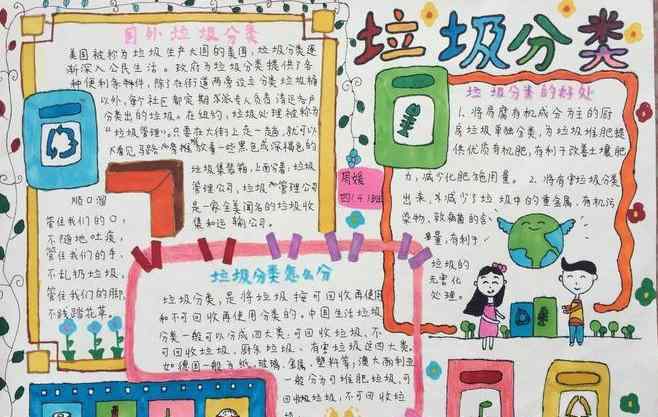 国外垃圾分类
美国被称为垃圾生产大国的美国,垃圾分类逐
渐深入公民生活。政府为垃圾分类提供了各
种便利条件,除了在街道两旁设立分类垃圾桶
以外,每个社区都定期派专人负责清运各户
分类出的垃圾。在纽约,垃圾处理被称为
"垃圾管理"。只要在大街上走一走,就可以
看见马路 放着一些黑色或深褐色的
垃圾集装箱,上面分着:垃圾
管理公司,垃圾管理公司
是一家全美闻名的垃圾收
集和运输公司。
顺口溜
管住我们的口,
不随地吐痰,
管住我们的手,
不乱扔垃圾,
管住我们的脚,
不践踏花草。
垃圾分类
周媛
四(4)班
垃圾分类的好处
1.将易腐有机成分为主的厨
房垃圾单独分类,为垃圾堆肥提
供优质有机肥,有利于改善土壤肥
力,减少化肥施用量。2.将有害垃圾分类
出来,减少了垃圾中的重金属,有机污
染物、致病菌的含
量,有利于
垃圾的
无害化
处理。
垃圾分类怎么分
垃圾分类,是将垃圾按可回收再使用
和不可回收再使用分类的。中国生活垃圾
分类一般可以分成四大类:可回收垃圾、不
可回收垃圾、厨余垃圾、有害垃圾这四大类。
如德国一般为纸、玻璃、金属、塑料等;澳大利亚
一般分为可堆肥垃圾,可
回收垃圾,不可回收垃